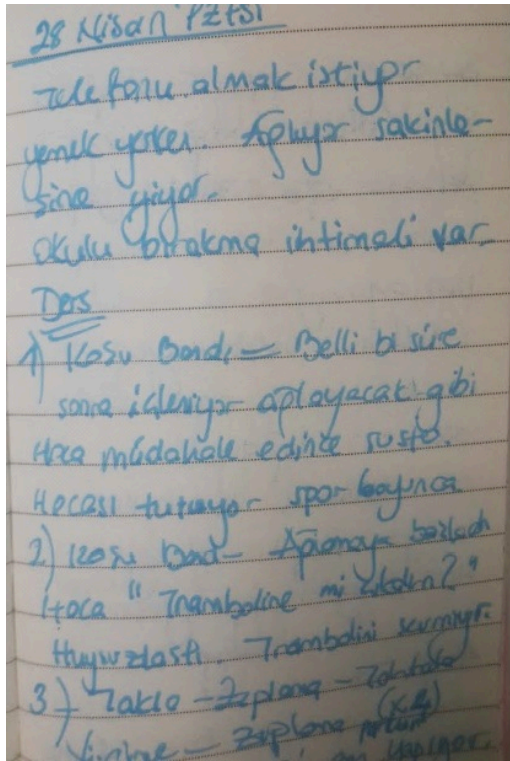 28 Nisan PZTSİ
Telefonu almak istiyor
yemek yerken. Ağlıyor sakinle-
sine yiyor.
Okulu bırakma ihtimali var.
Ders
1) Kosu Bandı = Belli bi süre
sonra icleniyor aglayacak gibi
Hoca müdahale edince susto.
Hocası tutuyor spor boyunca
2) Kosu Band - Aglamaya basladı
Hoca " Tramboline mi ?"
Huysuzlastı. Trambolini sevmiyor.
3) Takla - Zıplama -
- Zıplama